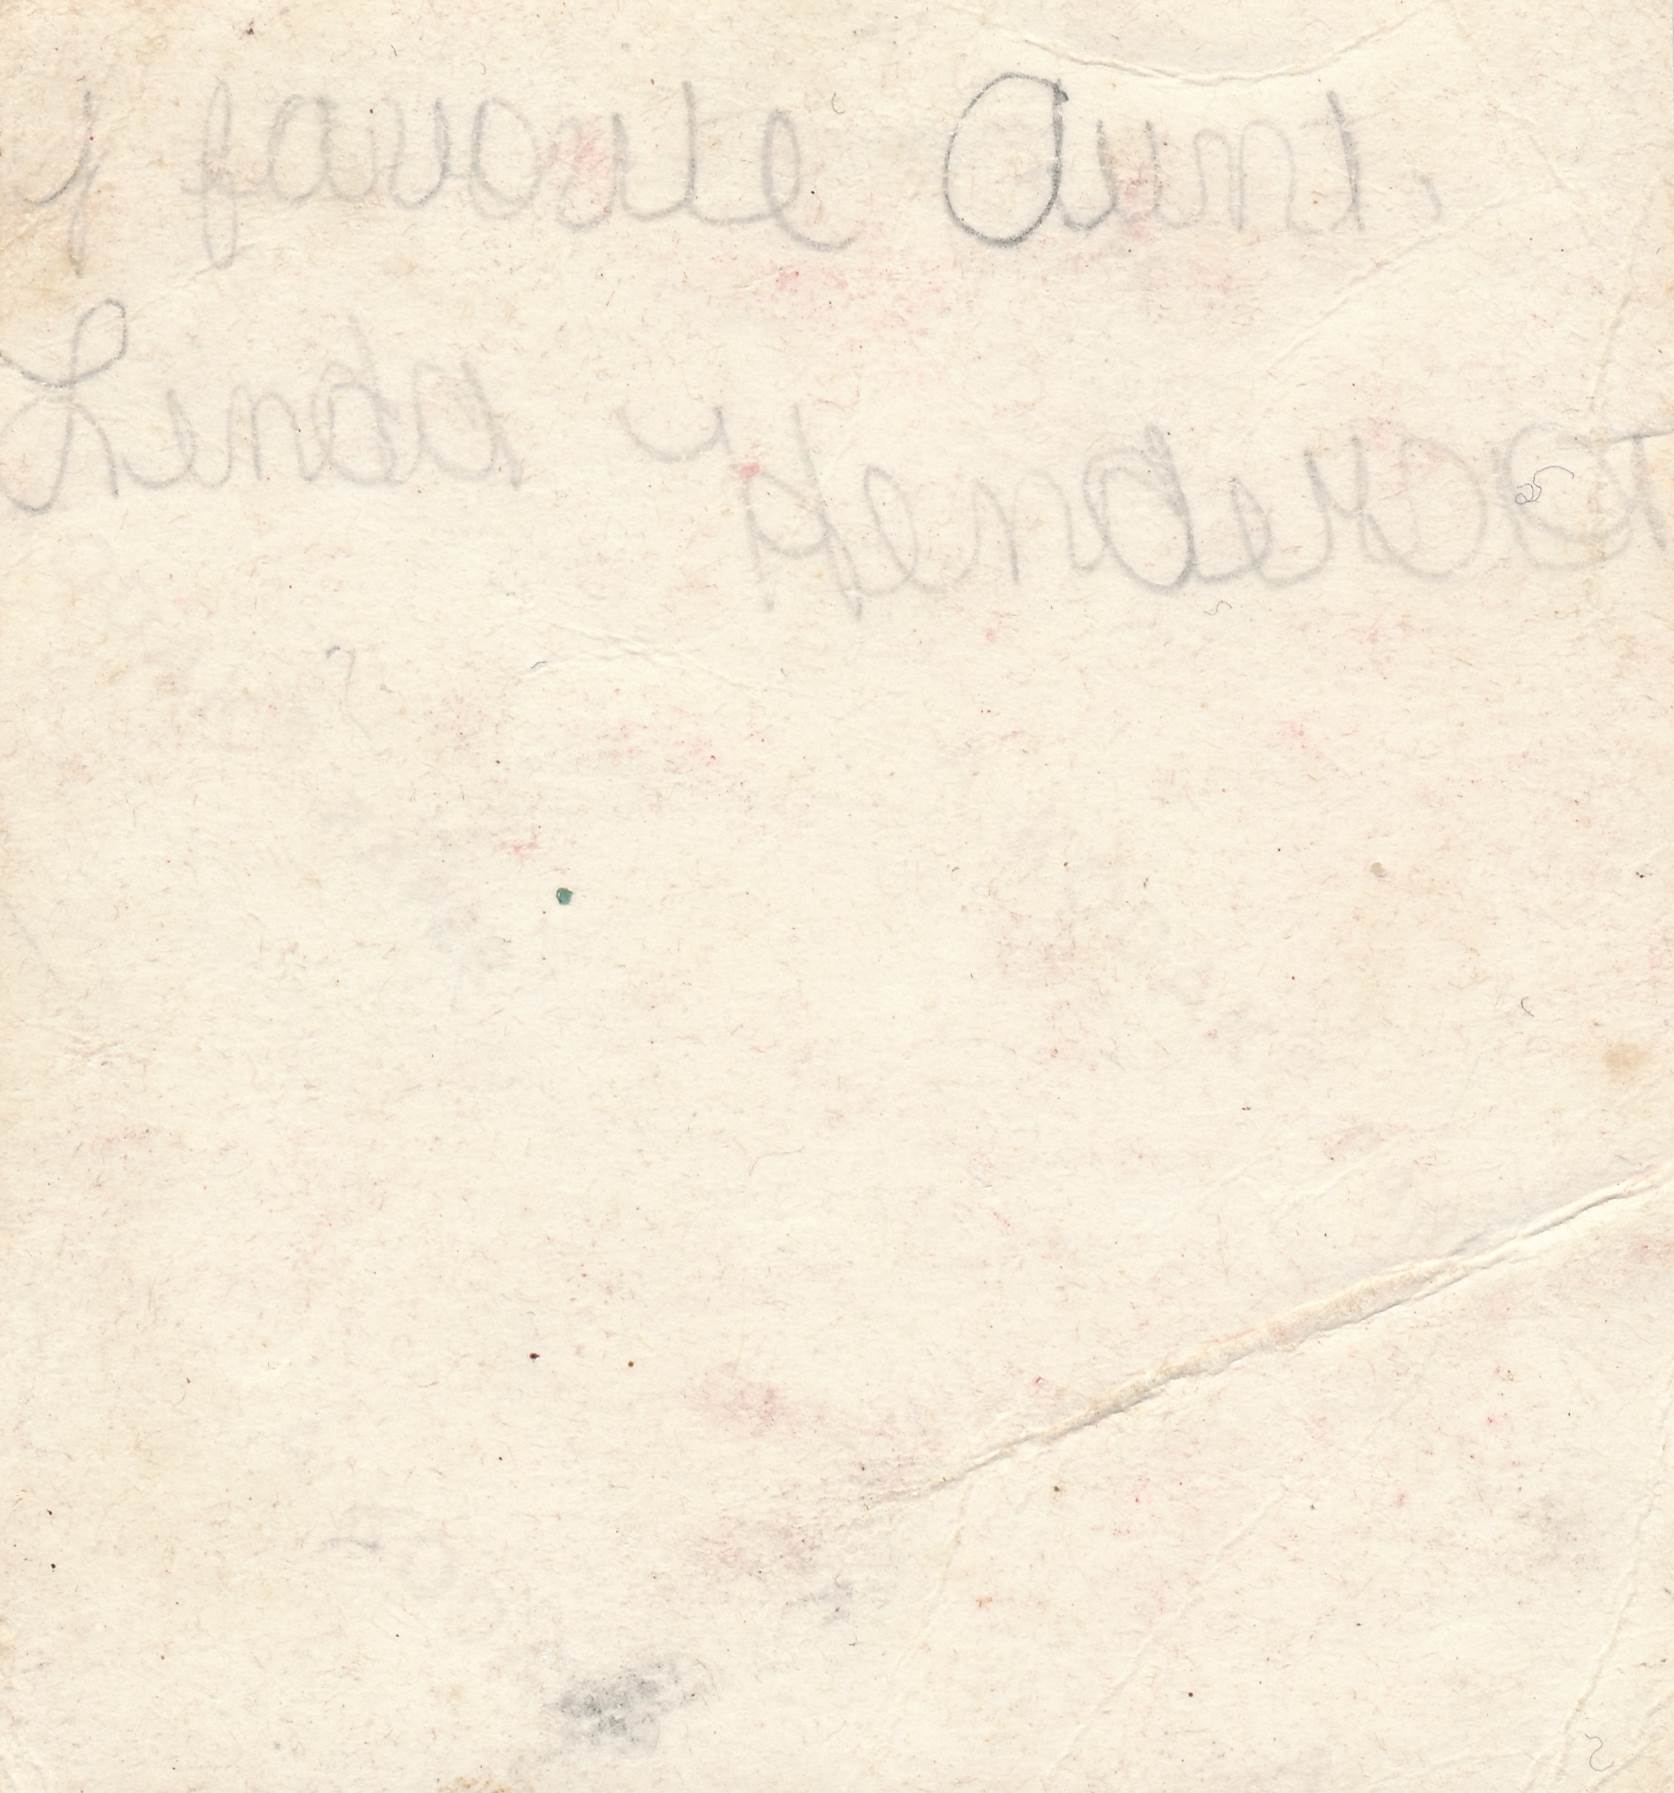 y favorite Aunt,
Linda Henderson